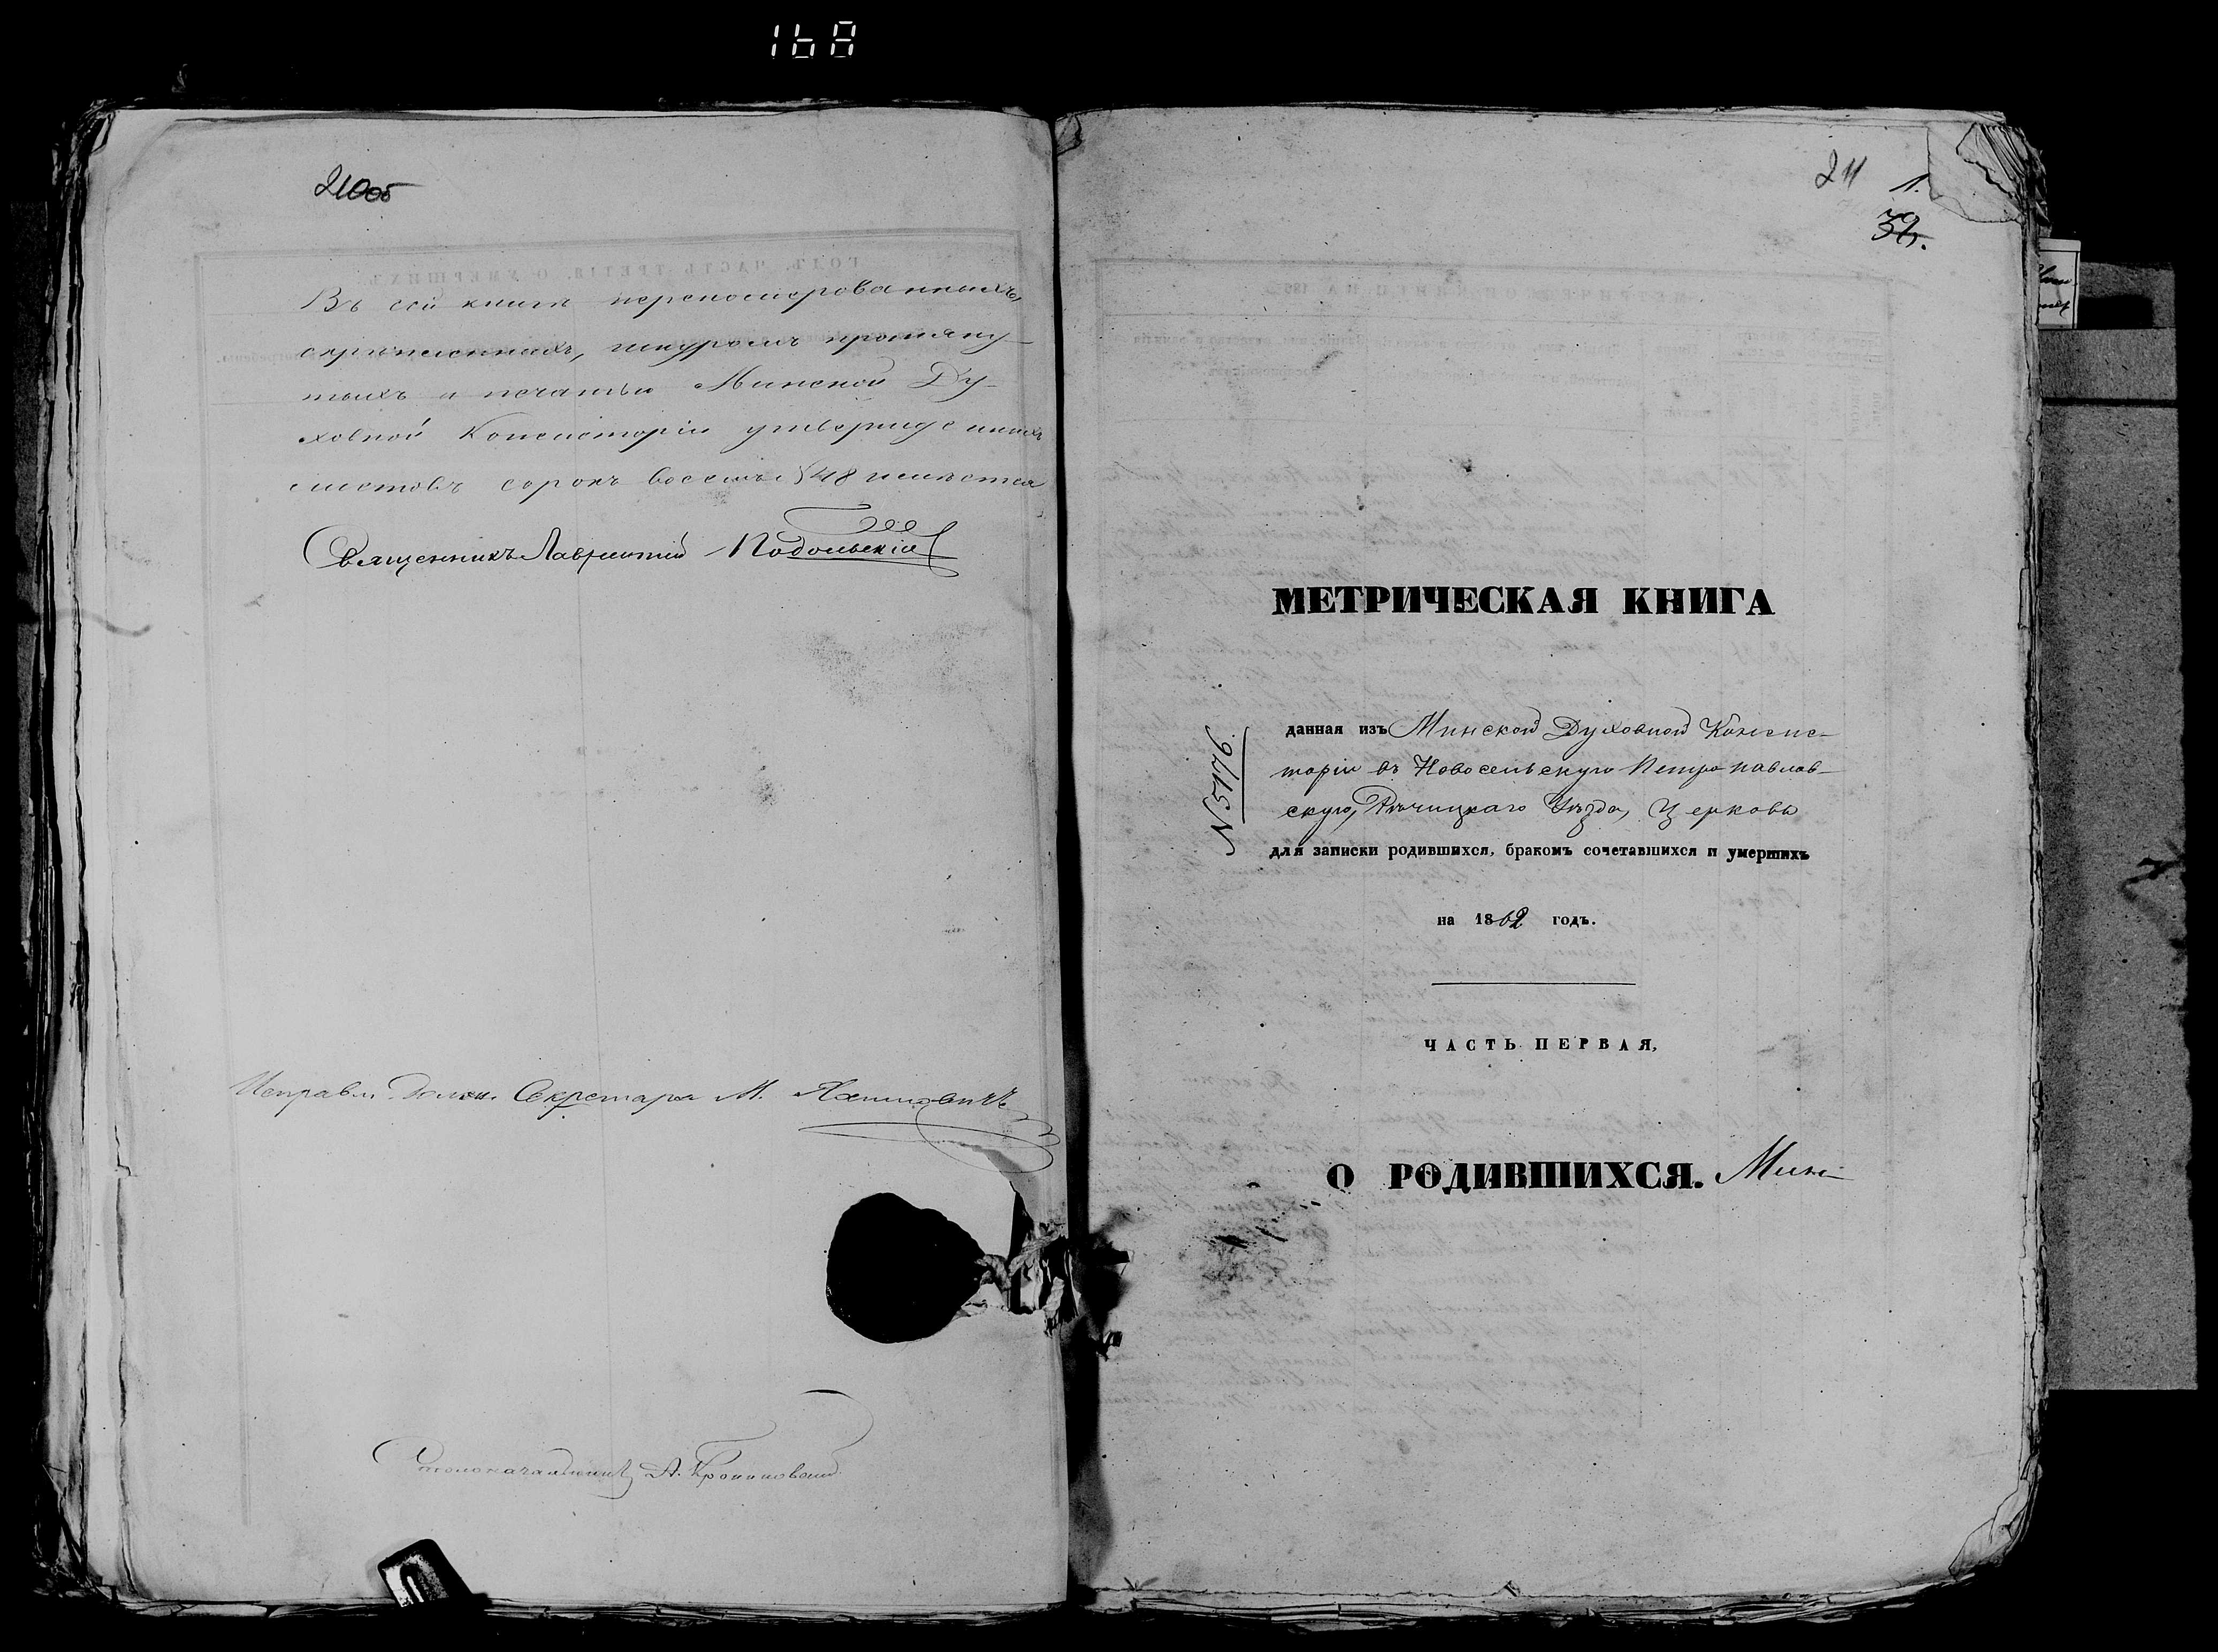 168
210об
Въ сей книгѣ переномерованныхъ,
скрѣпленныхъ, шнуромъ протяну-
тыхъ и печатью Минской Ду-
ховной Консисторіи утвержденныхъ
листовъ сорокъ восемь (48 имѣется
Священникъ Лаврентій Подольскій
Исправл. Должн. Секретаря М.
Столоначальникъ А.
211
1.
39.
МЕТРИЧЕСКАЯ КНИГА
N 5176.
данная изъ Минской Духовной Консис-
торіи въ Новосельскую Петропавлов-
скую, Рѣчицкаго Уѣзда, Церковь
для записки родившихся, бракомъ сочетавшихся и умершихъ
на 1862 годъ.
ЧАСТЬ ПЕРВАЯ,
О РОДИВШИХСЯ. Мин-